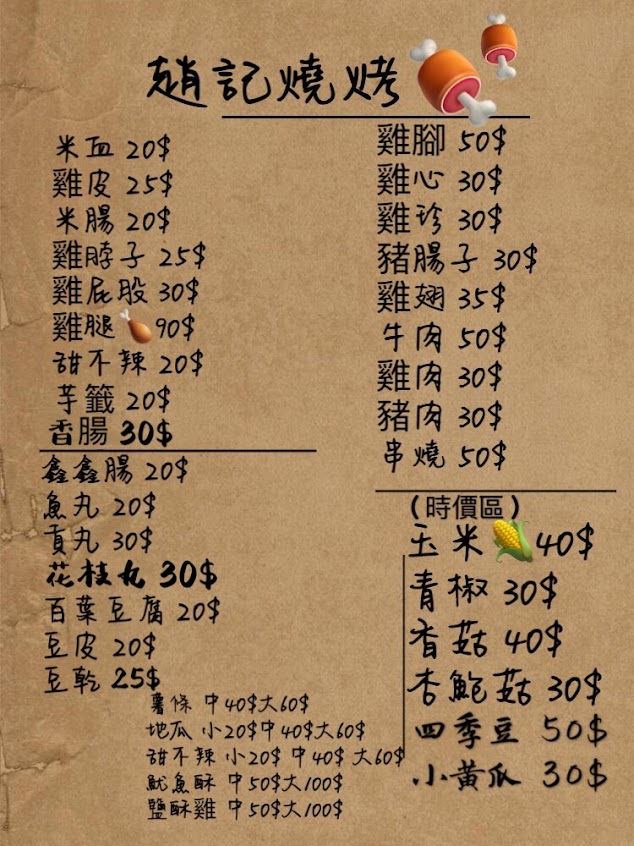 趙記燒烤
米血 20$
雞皮 25$
米腸 20$
雞脖子 25$
雞屁股 30$
雞腿 90$
甜不辣 20$
芋籤 20$
香腸 30$
鑫鑫腸 20$
魚丸 20$
貢丸 30$
花枝丸 30$
百葉豆腐 20$
豆皮 20$
豆乾 25$
薯條 中40$大60$
地瓜 小20$中40$大60$
甜不辣 小20$ 中40$ 大60$
魷魚酥 中50$大100$
鹽酥雞 中50$大100$
雞腳 50$
雞心 30$
雞珍 30$
豬腸子 30$
雞翅 35$
牛肉 50$
雞肉 30$
豬肉 30$
串燒 50$
(時價區)
玉米 40$
青椒 30$
香菇 40$
杏鮑菇 30$
四季豆 50$
小黃瓜 30$